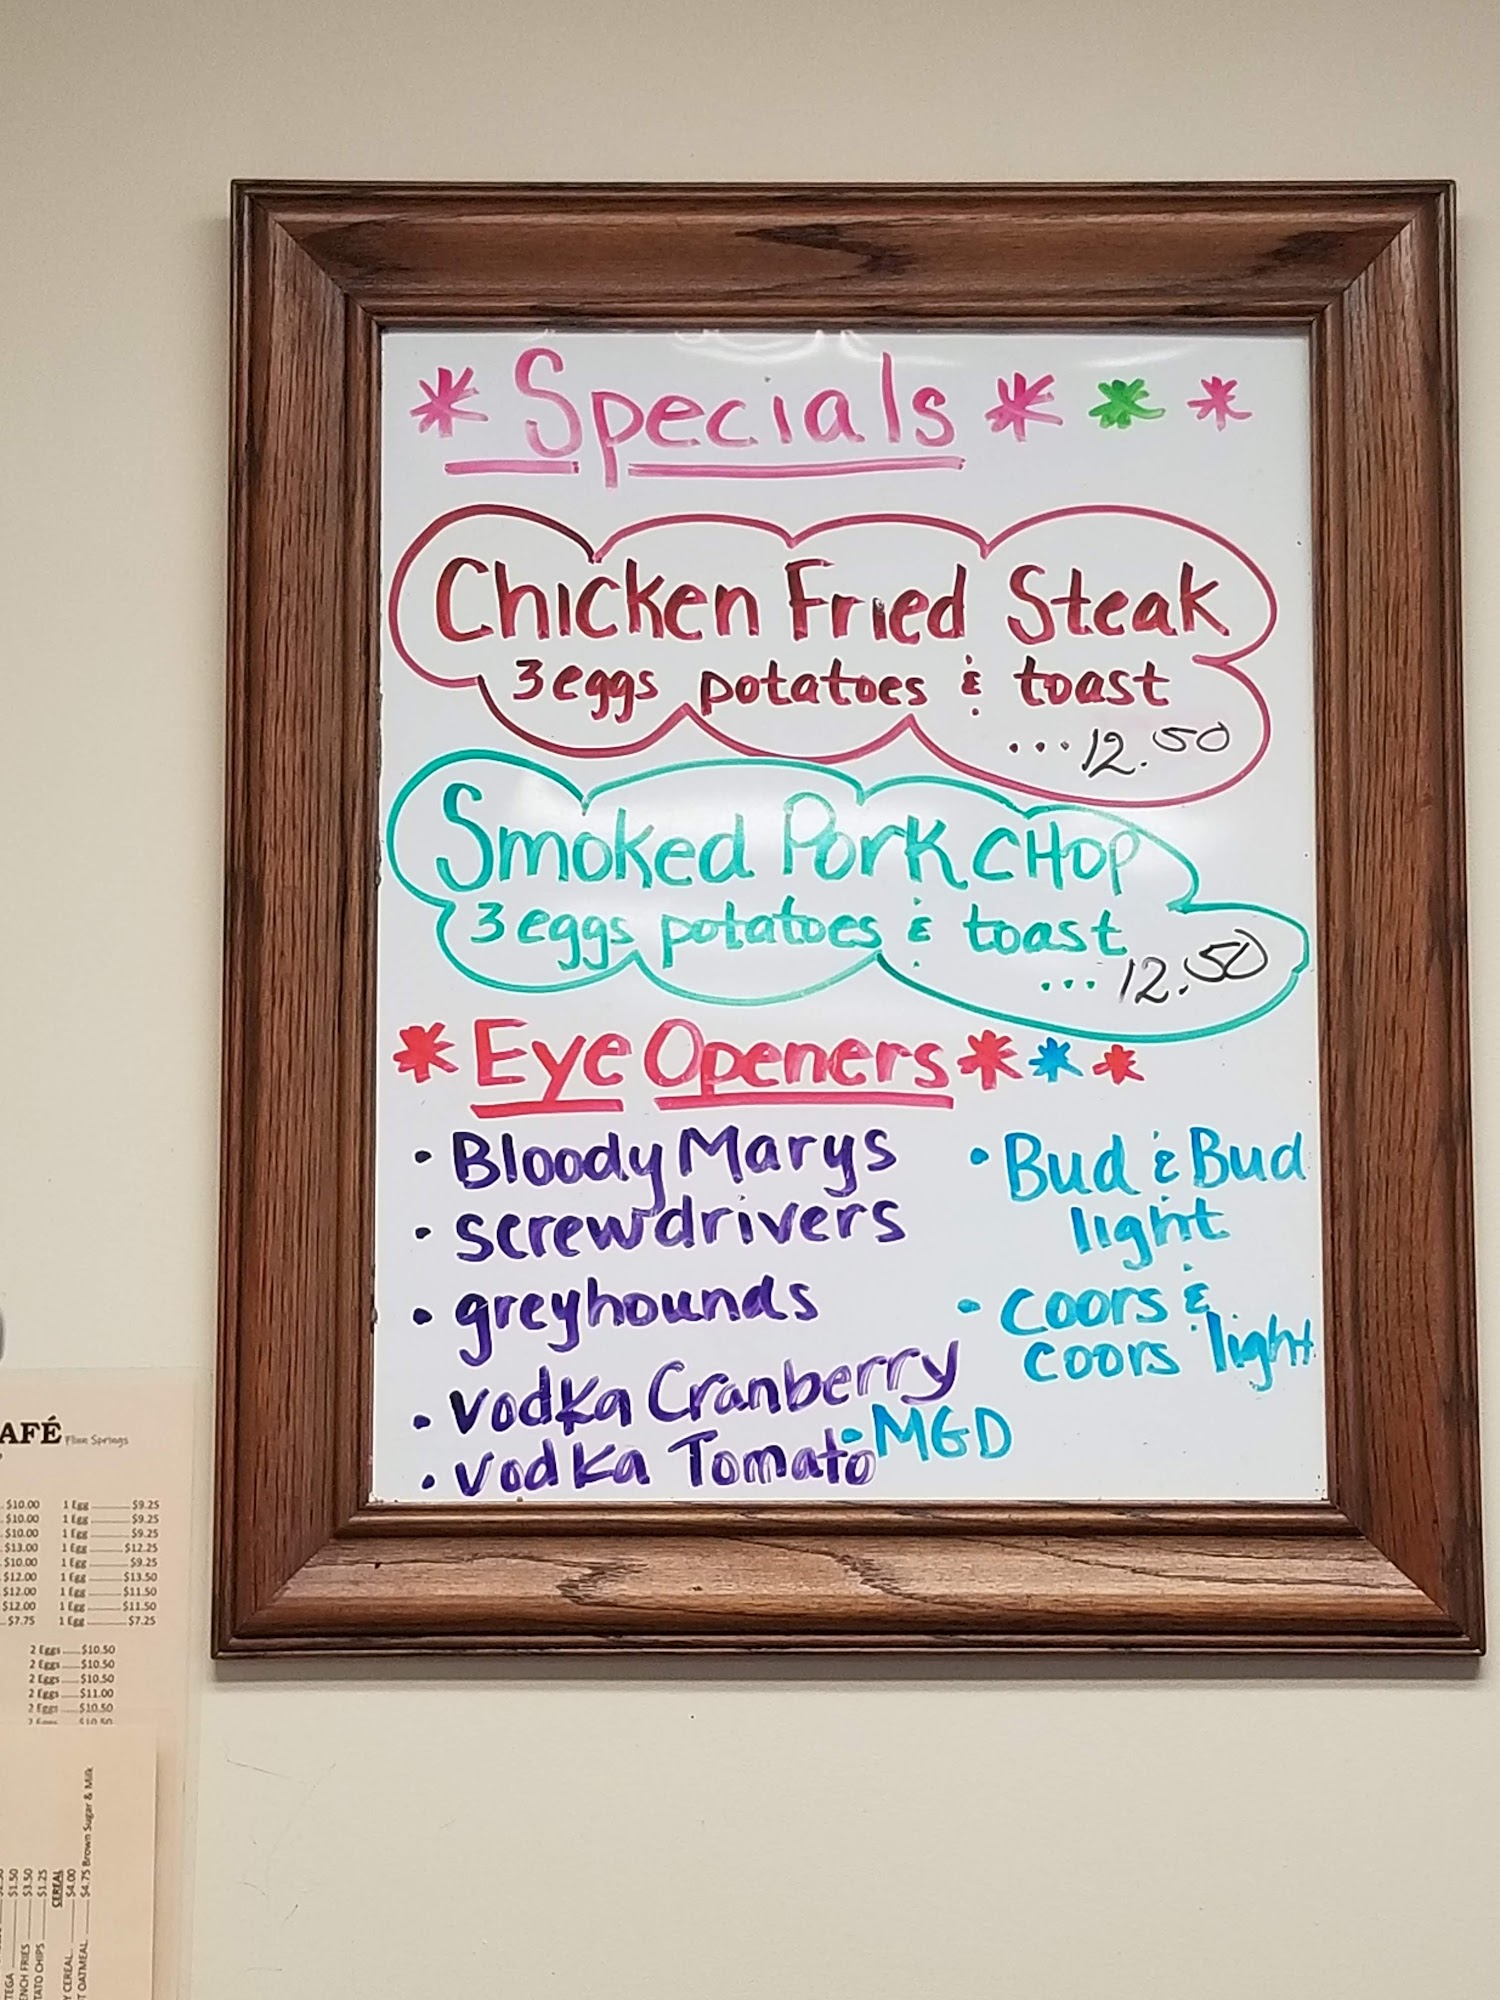 * Specials * * *
Chicken Fried Steak
3 eggs potatoes & toast
...12.50
Smoked Pork CHOP
3 eggs potatoes & toast
...12.50
* Eye Openers * * *
• Bloody Marys
• screwdrivers
• greyhounds
• vodka Cranberry
• vodka Tomato
• Bud & Bud
light
• Coors &
coors light
• MGD
AFÉ Flinn Springs
$10.00 1 Egg $9.25
$10.00 1 Egg $9.25
$10.00 1 Egg $9.25
$13.00 1 Egg $12.25
$10.00 1 Egg $9.25
$12.00 1 Egg $13.50
$12.00 1 Egg $11.50
$12.00 1 Egg $11.50
$7.75 1 Egg $7.25
2 Eggs $10.50
2 Eggs $10.50
2 Eggs $10.50
2 Eggs $11.00
2 Eggs $10.50
2 Eggs $10.50
TEGA $1.50
NCH FRIES $3.50
TATO CHIPS $1.25
CEREAL
Y CEREAL $4.00
T OATMEAL $4.75 Brown Sugar & Milk